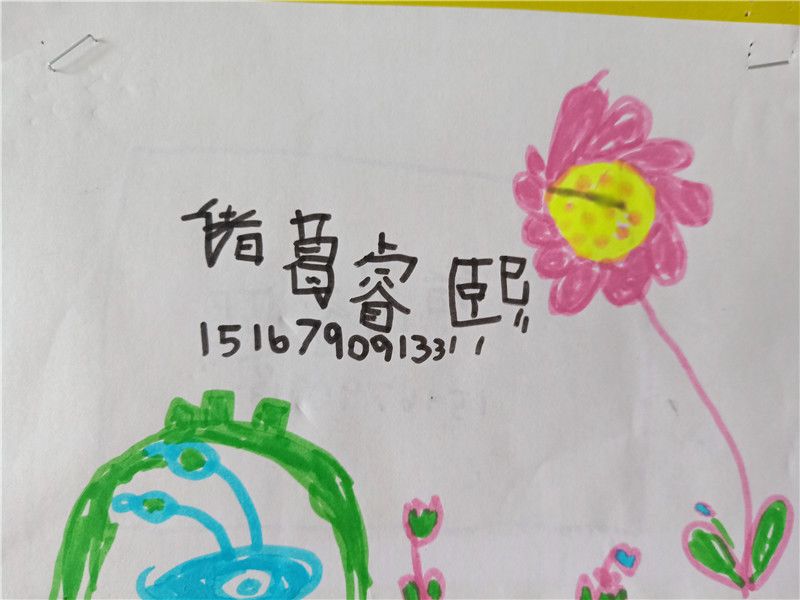 储葛睿熙
15167909133